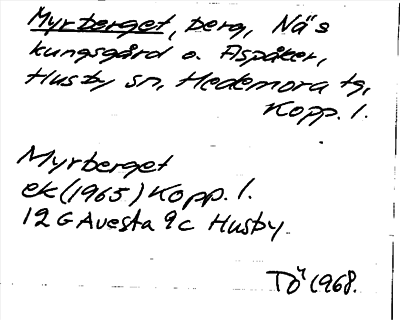 Myrberget, berg, Näs
kungsgård o. Aspåker,
Husby sn, Hedemora tg,
Kopp. l.
Myrberget
ek (1965) Kopp. l.
12 G Avesta 9c Husby.
Tö 1968.